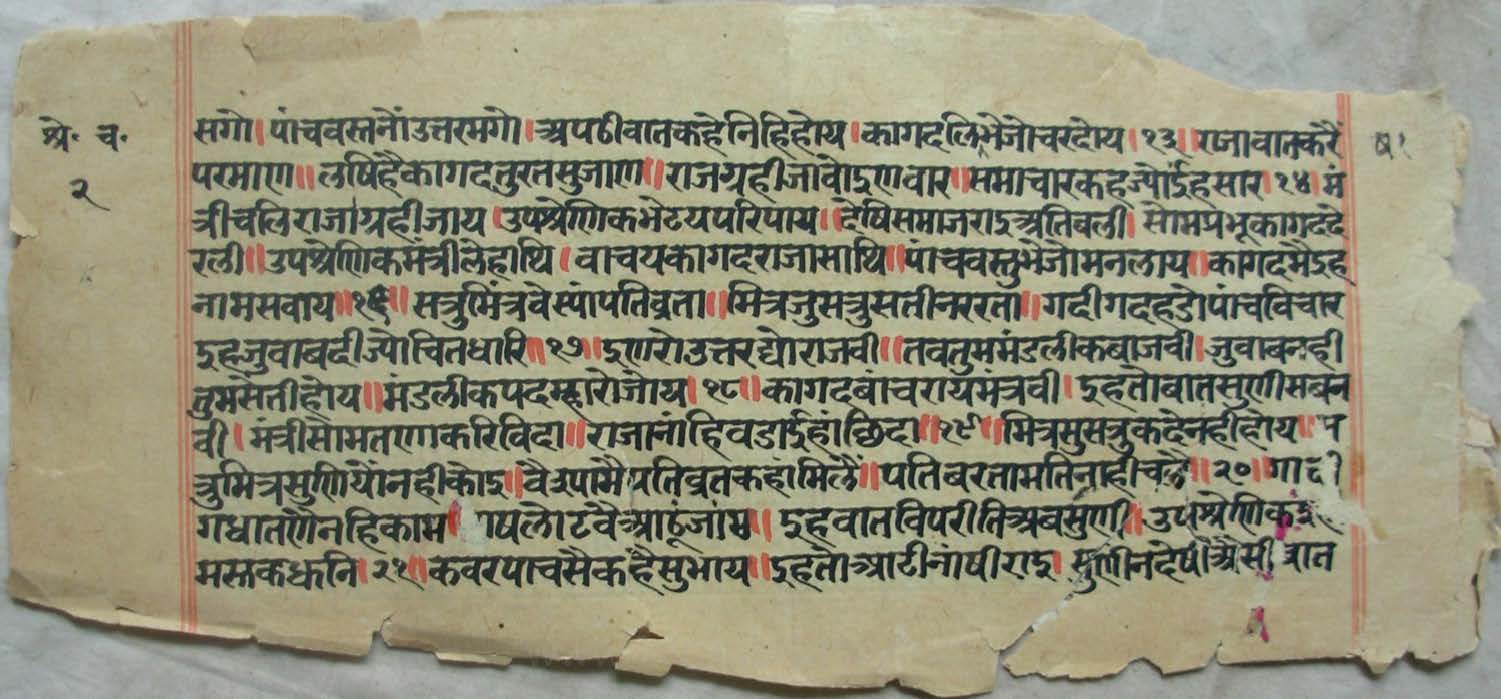 श्रे॰ च॰
२
सगो। पांचवस्तनौंउत्तरमगो। अपठीवातकहेनिहिहोय। कागदलिभेजोचरदोय। १३॥ राजावातकरैं
परमाण॥ लषिहैकागदतुरतसुजाण॥ राजग्रहीजावौइणवार॥ समाचारकहज्योंईहसार। १४। मं
त्रीचलिराजाग्रहीजाय। उपश्रेणिकभेटयपरिपाय॥ देषिसमाजराइअतिबली। सोमप्रभूकागददे
रली॥ उपश्रेणिकमंत्रीलेहाथि। वाचयकागदराजासाथि॥ पांचवस्तुभेजोमनलाय॥ कागदमैइह
नामसवाय॥ सत्रुमित्रवेस्यांपतिव्रता॥ मित्रजुसत्रुसतीनररता॥ गदीगदहडोपांचविचार
इहजुवाबदीज्योचितधारि॥ १७॥ इणरोउत्तरद्योराजवी॥ तवतुममंडलीकबाजवी। जुवाबनही
तुमसेतीहोय॥ मंडलीकपदम्हारोजोय। १८॥ कागदबांचरायमंत्रवी। इहतौवातसुणीसबन
वी। मंत्रीसोमतणाकरिविदा॥ राजानांहिवडाईहांछिदा॥ १९॥ मित्रसुसत्रुकदेनहीहोय॥
त्रुमित्रसुणियोंनहीकोइ॥ वैउपामैपतिव्रतकहांमिलैं॥ पतिबरतामतिनाहीचलै॥ २०॥ गादी
गधातणैनहिकाम षलोटवैआठूंजांम॥ इहवातविपरीतिअबसुणी। उपश्रेणिक
मस्तकधुनि। २१॥ कवरपाचसैकहैसुभाय॥ इहतौआटीनांषीराइ। सुणीनदेषीअैसी वात